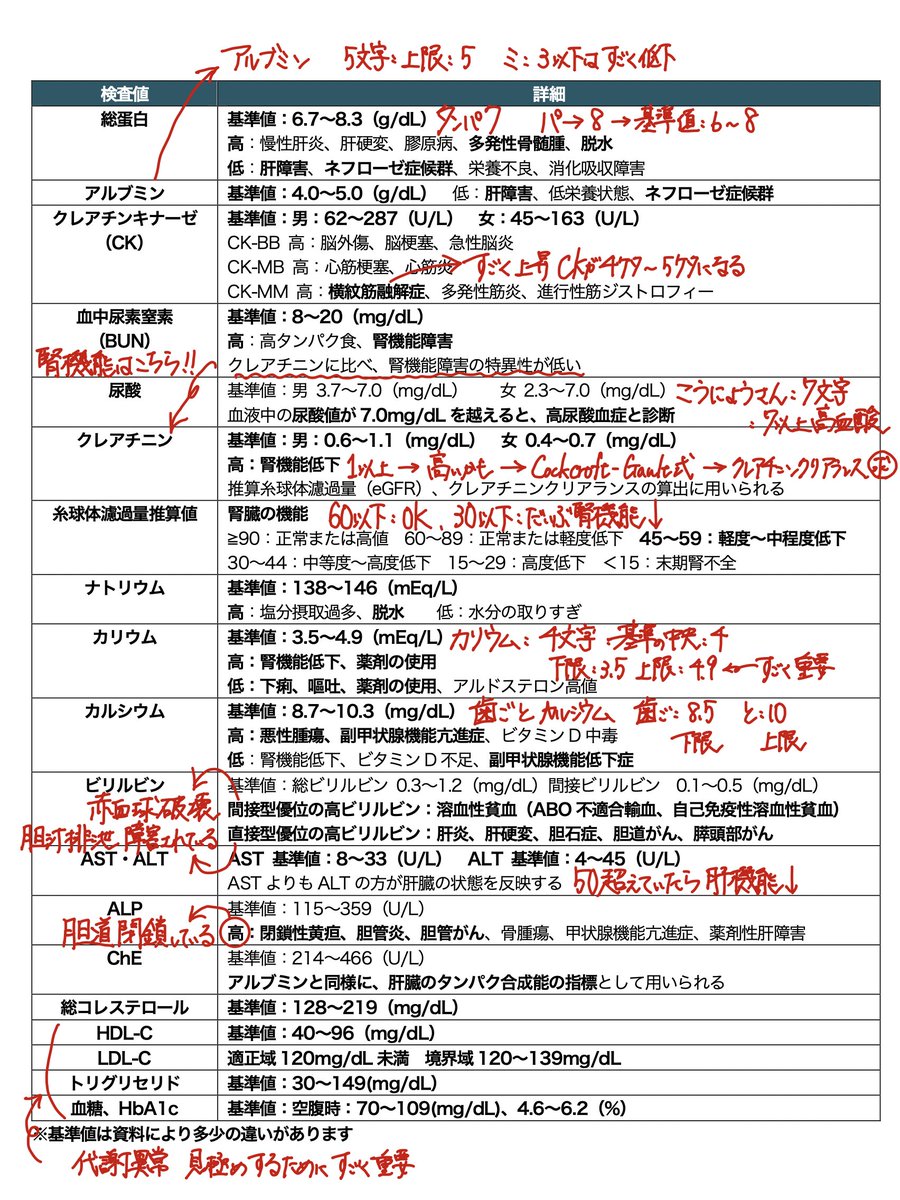 アルブミン 5文字:上限:5 ミ:3以下はすごく低下
検査値 詳細
総蛋白 基準値：6.7〜8.3（g/dL） タンパク パ→8→基準値:6〜8
高：慢性肝炎、肝硬変、膠原病、多発性骨髄腫、脱水
低：肝障害、ネフローゼ症候群、栄養不良、消化吸収障害
アルブミン 基準値：4.0〜5.0（g/dL） 低：肝障害、低栄養状態、ネフローゼ症候群
クレアチンキナーゼ 基準値：男：62〜287（U/L） 女：45〜163（U/L）
（CK） CK-BB 高：脳外傷、脳梗塞、急性脳炎
CK-MB 高：心筋梗塞、心筋炎 すごく上昇 CKが4ケタ〜5ケタになる
CK-MM 高：横紋筋融解症、多発性筋炎、進行性筋ジストロフィー
血中尿素窒素 基準値：8〜20（mg/dL）
（BUN） 高：高タンパク食、腎機能障害
腎機能はこちら!! クレアチニンに比べ、腎機能障害の特異性が低い
尿酸 基準値：男 3.7〜7.0（mg/dL） 女 2.3〜7.0（mg/dL） こうにょうさん:7文字
血液中の尿酸値が 7.0mg/dL を越えると、高尿酸血症と診断 :7以上高血酸
クレアチニン 基準値：男：0.6〜1.1（mg/dL） 女 0.4〜0.7（mg/dL）
高：腎機能低下 1以上→高いかも→Cockcroft-Gault式→クレアチニンクリアランス
推算糸球体濾過量（eGFR）、クレアチニンクリアランスの算出に用いられる
糸球体濾過量推算値 腎臓の機能 60以下:OK、30以下:だいぶ腎機能↓
≥90：正常または高値 60〜89：正常または軽度低下 45〜59：軽度〜中程度低下
30〜44：中等度〜高度低下 15〜29：高度低下 ＜15：末期腎不全
ナトリウム 基準値：138〜146（mEq/L）
高：塩分摂取過多、脱水 低：水分の取りすぎ
カリウム 基準値：3.5〜4.9（mEq/L） カリウム:4文字 基準の中央:4
高：腎機能低下、薬剤の使用 下限:3.5 上限:4.9 ←すごく重要
低：下痢、嘔吐、薬剤の使用、アルドステロン高値
カルシウム 基準値：8.7〜10.3（mg/dL） 歯ごとカルシウム 歯ご:8.5 と:10
高：悪性腫瘍、副甲状腺機能亢進症、ビタミン D 中毒 下限 上限
低：腎機能低下、ビタミン D 不足、副甲状腺機能低下症
ビリルビン 基準値：総ビリルビン 0.3〜1.2（mg/dL）間接ビリルビン 0.1〜0.5（mg/dL）
赤血球破壊 間接型優位の高ビリルビン：溶血性貧血（ABO 不適合輸血、自己免疫性溶血性貧血）
胆汁排泄障害されている 直接型優位の高ビリルビン：肝炎、肝硬変、胆石症、胆道がん、膵頭部がん
AST・ALT AST 基準値：8〜33（U/L） ALT 基準値：4〜45（U/L）
AST よりも ALT の方が肝臓の状態を反映する 50超えていたら肝機能↓
ALP 基準値：115〜359（U/L）
胆道閉鎖している 高：閉鎖性黄疸、胆管炎、胆管がん、骨腫瘍、甲状腺機能亢進症、薬剤性肝障害
ChE 基準値：214〜466（U/L）
アルブミンと同様に、肝臓のタンパク合成能の指標として用いられる
総コレステロール 基準値：128〜219（mg/dL）
HDL-C 基準値：40〜96（mg/dL）
LDL-C 適正域 120mg/dL 未満 境界域 120〜139mg/dL
トリグリセリド 基準値：30〜149(mg/dL)
血糖、HbA1c 基準値：空腹時：70〜109(mg/dL)、4.6〜6.2（%）
※基準値は資料により多少の違いがあります
代謝異常 見極めするためにすごく重要